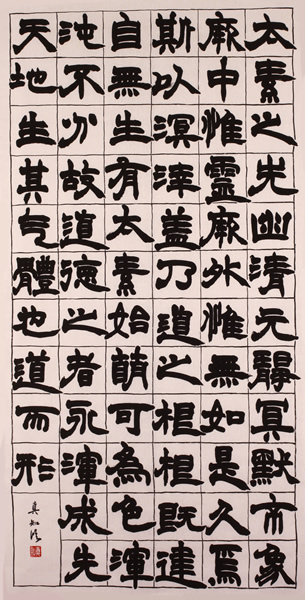 太素之先幽清元靜冥默象
厥中惟靈厥外惟無如是久焉
斯以溟涬蓋乃道之根根既建
自無生有太素始萌可為色渾
沌不分故道德之者永渾成先
天地生其气體也道而形